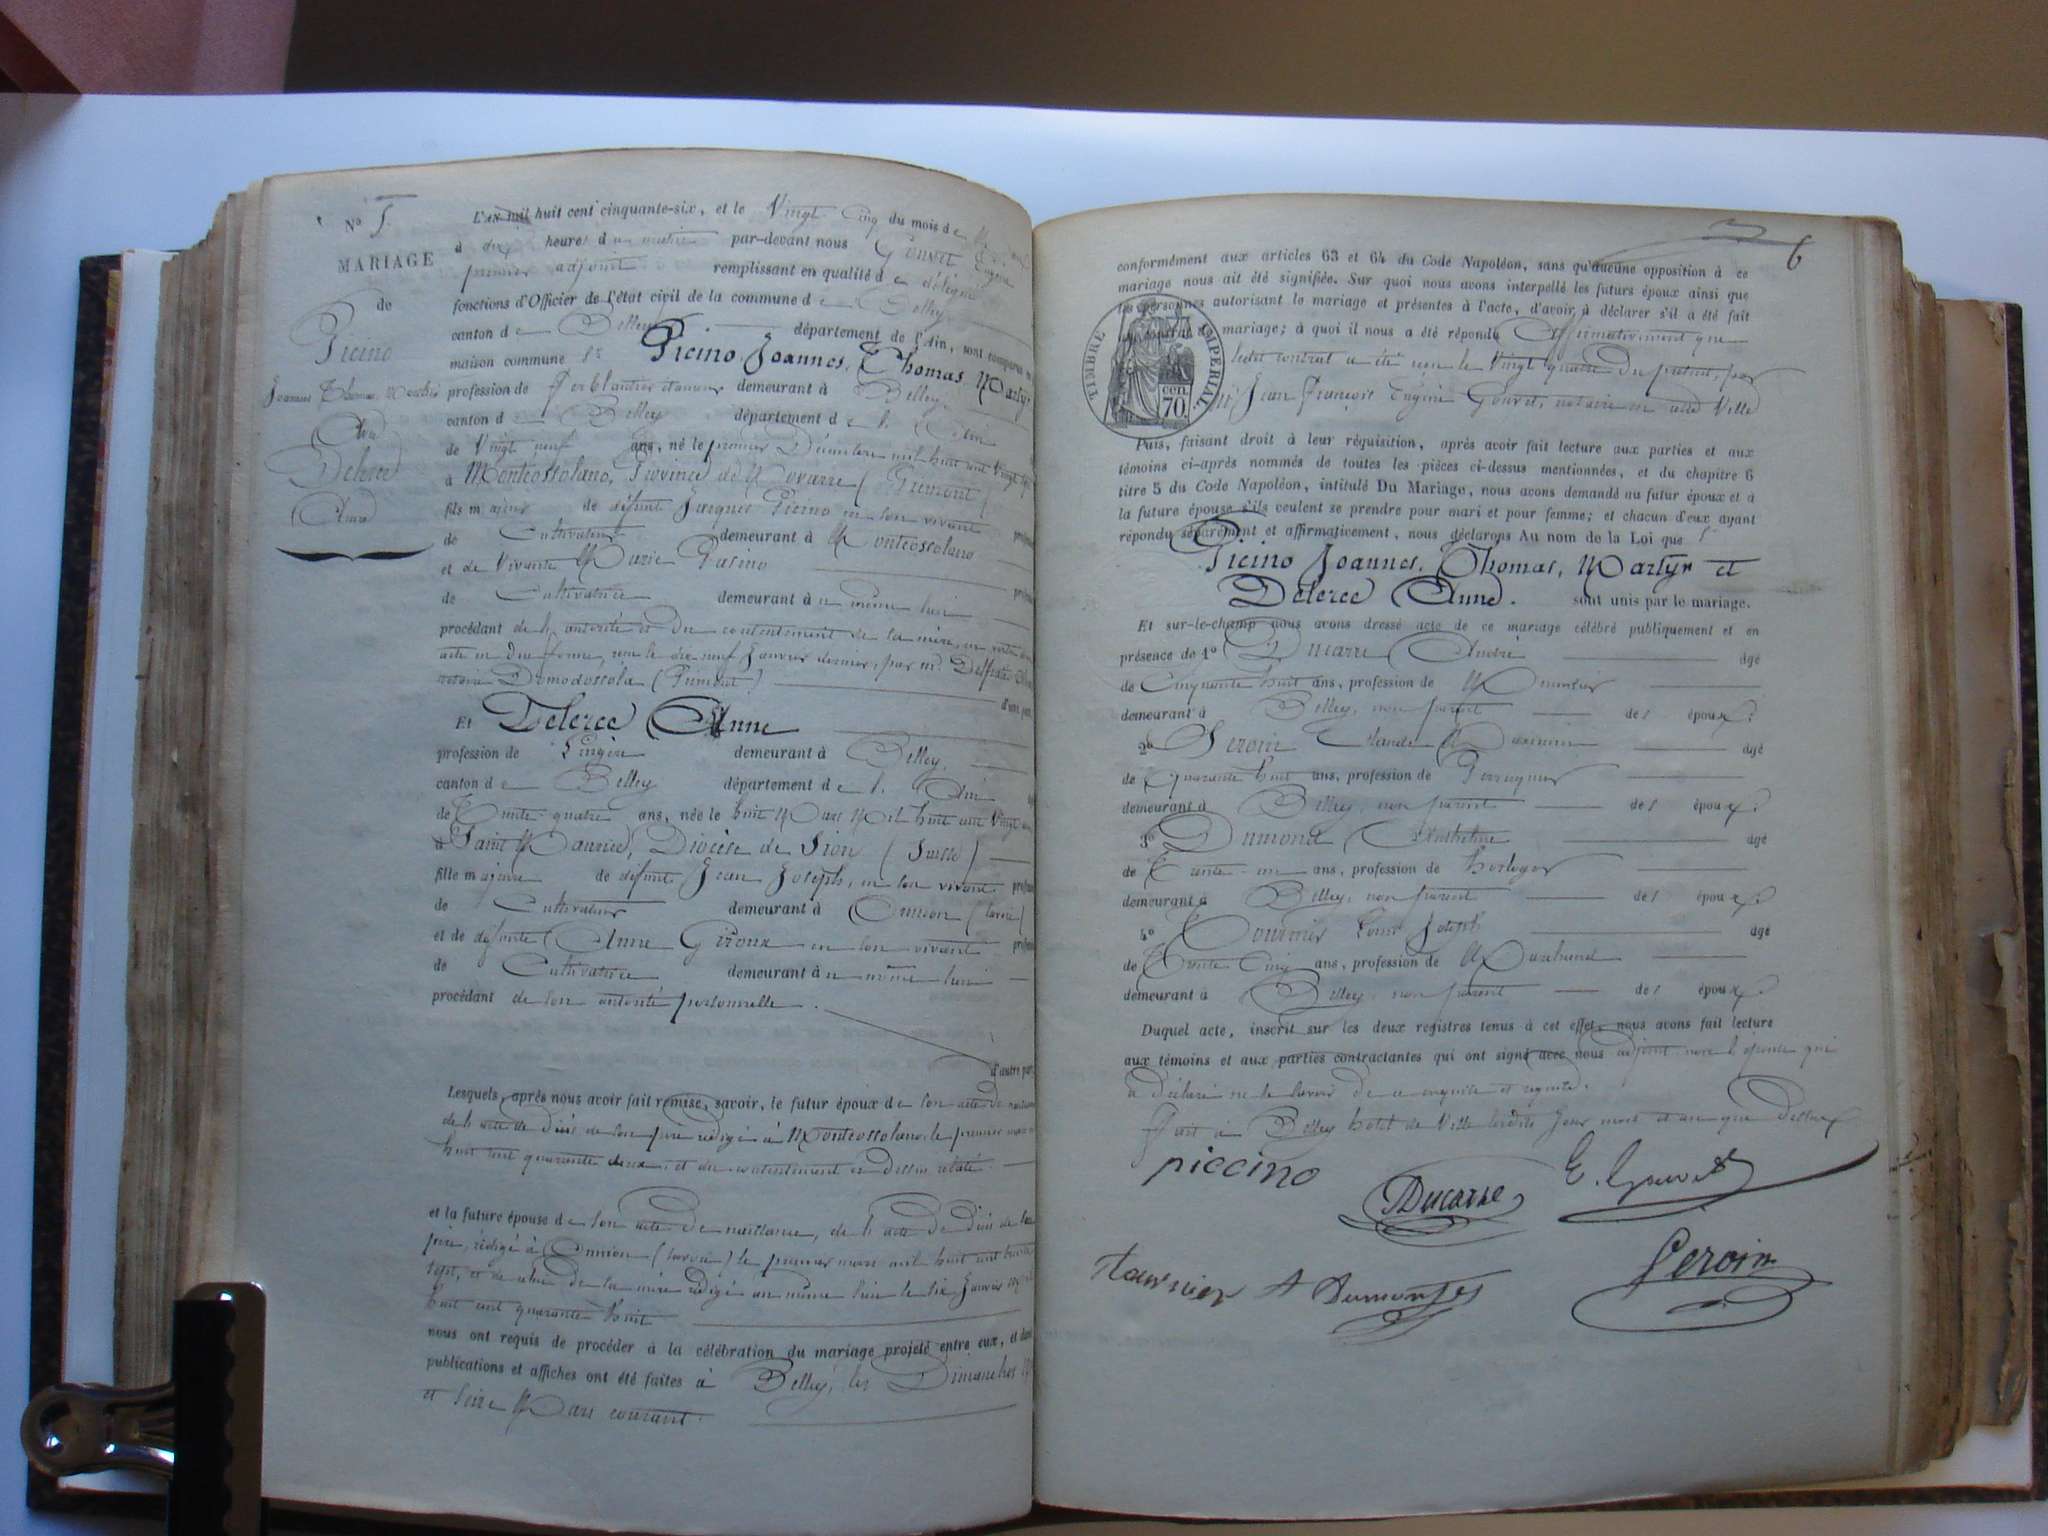 No 5
MARIAGE
de
Picino
Joannes Thomas, Martyr
Et
Delerce
Anne
L'an mil huit cent cinquante-six, et le Vingt Cinq du mois de Mars
à dix heures du matin par-devant nous Gouvet Eugène
premier adjoint remplissant en qualité de délégué
fonctions d'Officier de l'état civil de la commune de Belley
canton de Belley département de l'Ain, sont comparus en
maison commune Sr Picino, Joannes, Thomas, Martyr
profession de Ferblantier étameur demeurant à Belley,
canton de Belley département de l'Ain
de Vingt neuf ans, né le premier Décembre mil huit cent Vingt
à Monteossolano, Province de Novarre (Piémont)
fils majeur de défunt Jacques Picino en son vivant
de Cultivateur demeurant à Monteossolano
et de Vivante Marie Pasino
de Cultivatrice demeurant à u même lieu
procédant de l'autorité et du consentement de sa mère, en
acte en due forme, reçu le dix neuf Janvier dernier, par Me
notaire Domodossola (Piémont)
d'une part,
Et Delerce Anne
profession de Lingère demeurant à Belley,
canton de Belley département de l'Ain
de Trente-quatre ans, née le huit Mars Mil huit cent Vingt
à Saint Maurice, Diocèse de Sion (Suisse)
fille majeure de défunt Jean Joseph, en son vivant
de Cultivateur demeurant à Onnion (Savoie)
et de défunte Anne Giroux en son vivant
de Cultivatrice demeurant à u même lieu
procédant de son autorité personnelle.
d'autre part
Lesquels, après nous avoir fait remise, savoir, le futur époux de son acte de naissance
de l'acte de décès de son père rédigé à Monteossolano, le premier mars
huit cent quarante deux, et du consentement ci-dessus relaté
et la future épouse de son acte de naissance, de l'acte de décès de son
père, rédigé à Onnion (Savoie) le premier mars mil huit cent trente
sept, et de celui de sa mère rédigé au même lieu le six Janvier mil
huit cent quarante huit
nous ont requis de procéder à la célébration du mariage projeté entre eux, et dont
publications et affiches ont été faites à Belley, les Dimanches
et seize Mars courant.
6
conformément aux articles 63 et 64 du Code Napoléon, sans qu'aucune opposition à ce
mariage nous ait été signifiée. Sur quoi nous avons interpellé les futurs époux ainsi que
les personnes autorisant le mariage et présentes à l'acte, d'avoir à déclarer s'il a été fait
un contrat de mariage; à quoi il nous a été répondu Affirmativement que
ledit contrat a été reçu le Vingt quatre du présent, par
Me Jean François Eugène Gouvet, notaire en cette Ville
TIMBRE IMPERIAL
cen.
70.
Puis, faisant droit à leur réquisition, après avoir fait lecture aux parties et aux
témoins ci-après nommés de toutes les pièces ci-dessus mentionnées, et du chapitre 6
titre 5 du Code Napoléon, intitulé Du Mariage, nous avons demandé au futur époux et à
la future épouse s'ils veulent se prendre pour mari et pour femme; et chacun d'eux ayant
répondu séparément et affirmativement, nous déclarons Au nom de la Loi que
Picino Joannes, Thomas, Martyr et
Delerce Anne. sont unis par le mariage.
Et sur-le-champ nous avons dressé acte de ce mariage célébré publiquement et en
présence de 1o Ducarre André âgé
de Cinquante huit ans, profession de Menuisier
demeurant à Belley, non parent des époux.
2o Seroin Claude Maximin âgé
de Quarante huit ans, profession de Perruquier
demeurant à Belley, non parent des époux.
3o Dumond Anthelme âgé
de Trente-un ans, profession de horloger
demeurant à Belley, non parent des époux.
4o Tournier Louis Joseph âgé
de Trente Cinq ans, profession de Marchand
demeurant à Belley, non parent des époux.
Duquel acte, inscrit sur les deux registres tenus à cet effet, nous avons fait lecture
aux témoins et aux parties contractantes qui ont signé avec nous adjoint non l'épouse qui
a déclaré ne le savoir de ce enquise et requise.
Fait à Belley hotel de Ville lesdits Jour mois et an que dessus
piccino
Ducarre
E. Gouvet
Tournier
A Dumond
Seroin